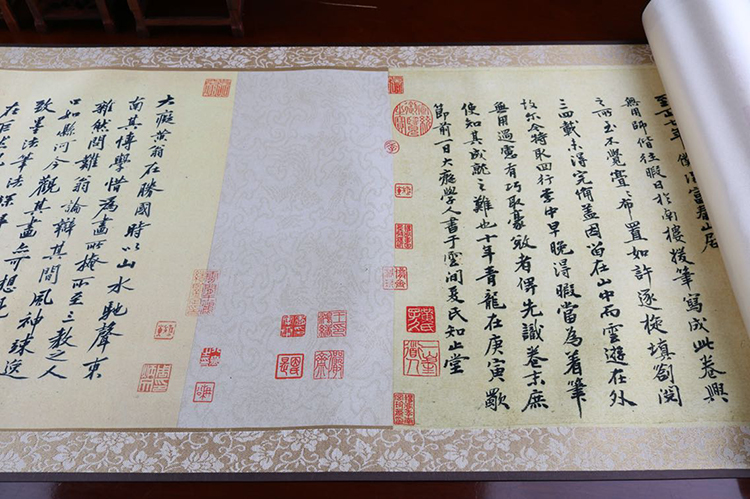 至正七年僕歸富春山居
無用師偕往暇日於南樓援筆寫成此卷興
之所至不覺亹亹布置如許逐旋填劄閱
三四載未得完俻盖因留在山中而雲遊在外
故尔今特取回行李中早晚得暇當為着筆
無用過慮有巧取豪敚者俾先識卷末庶
使知其成就之難也十年青龍在庚寅歜
節前一日大癡學人書于雲間夏氏知止堂
黃氏子久
一峯道人
大癡黃翁在勝國時以山水馳聲東
南其博學惜為畫所掩所至三教之人
雜然問難翁論辯其間風神竦逸
口如縣河今觀其畫亦可想見
致墨法筆法深
在巨然